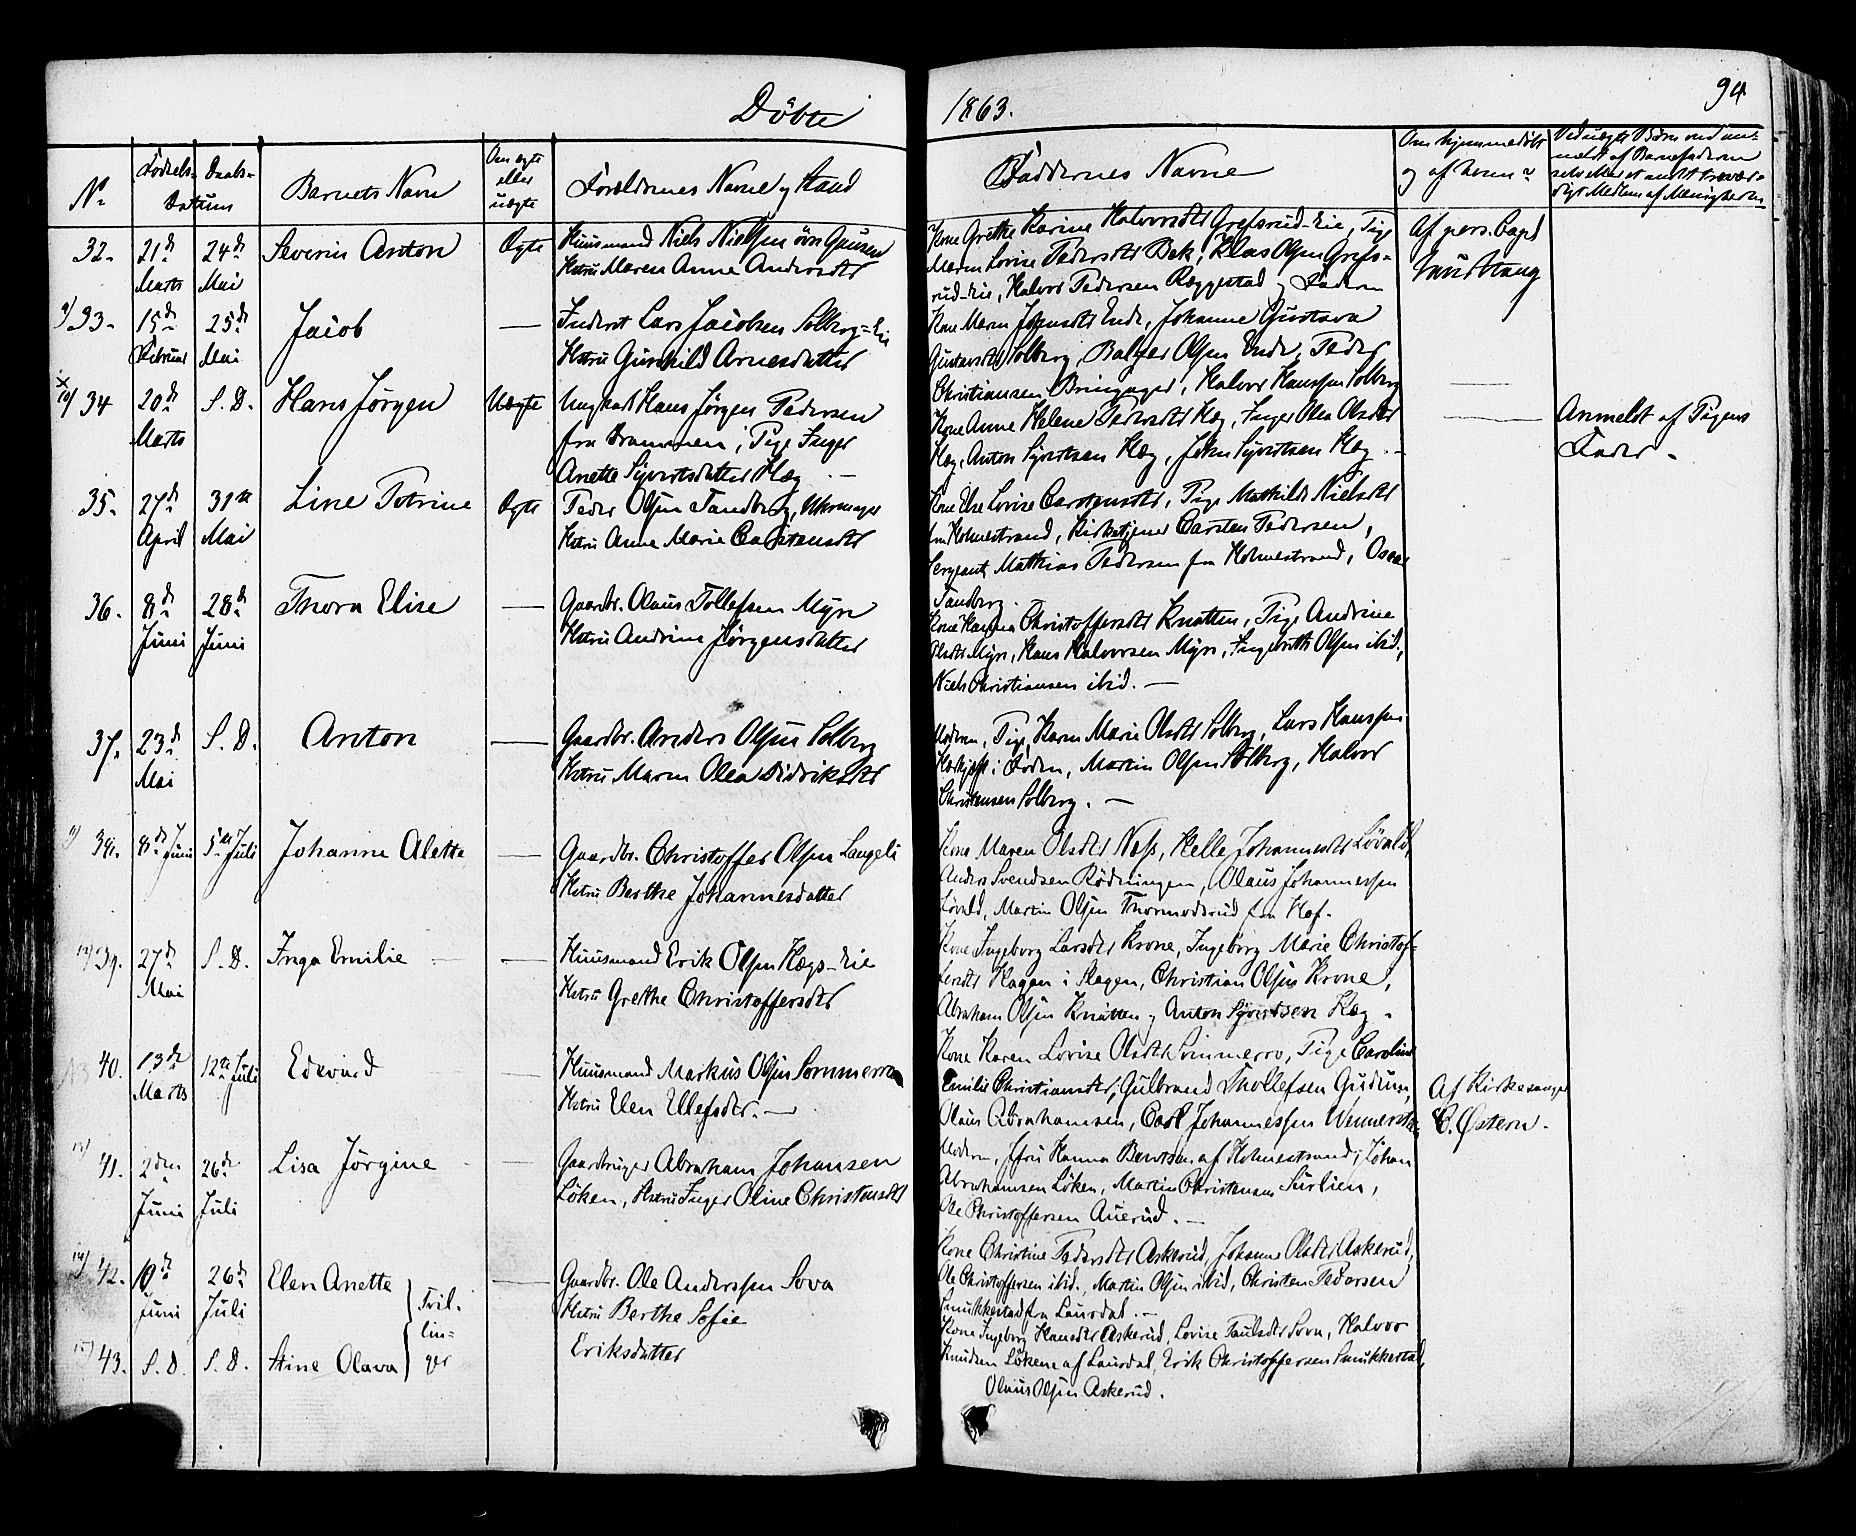 Döbte
1863.
94
No
Födsels-
Daabs-
Datum
Barnets Navn
Om ægte
eller
uægte
Forældrenes Navne og Stand
Faddernes Navne
Om hjemmedöbt
og af hvem?
Ved uægte Börn ved an-
meldt af Barnefaderen
selv eller et andet trovær-
digt Medlem af Menigheden
32.
21de
Marts
24de
Mai
Severin Anton
Ægte
Huusmand Niels Nielsen
Hstru Maren Anne Andersdtr
Kone Grethe Karine Halvorsdtr Grefsrud-Eie, Pige
Maren Lovise Pedersdtr Bek, Klas Olsen Grefs-
rud-Eie, Halvor Pedersen Reggestad og Faderen
Af pers. Capl
33.
15de
Februar
25de
Mai
Jacob
Inderst Lars Jacobsen Solberg-Eie
Hstru Gunhild Arnesdatter
Kone Maren Jensdtr Ende, Johanne Gustava
Gustavsdtr Solberg, Balzer Olsen Ende, Peder
Christiansen Bringager, Halvor Hanssen Solberg
10/ 34
20de
Marts
S. D.
Hans Jörgen
Uægte
Ungkarl Hans Jörgen Pedersen
fra Drammen, Pige Inger
Anette Syvertsdatter Hæg
Kone Anne Helene Pedersdtr Hæg, Inger Olea Olsdtr
Hæg, Anton Syvertsen Hæg, Johan Syvertsen Hæg
Anmeldt af Pigens
Fader.
35.
27de
April
31te
Mai
Line Petrine
Ægte
Peder Olsen Sandberg, Uhrmager
Hstru Anne Marie Carstensdtr
Kone Else Lovise Carstensdtr, Pige Mathilde Nielsdtr
fra Holmestrand, Kirketjener Carsten Pedersen,
Sergeant Mathias Pedersen fra Holmestrand, Oscar
Sandberg.
36.
8de
Juni
28de
Juni
Thora Elise
Gaardbr. Olaus Tollefsen Myre
Hstru Andrine Jörgensdatter
Kone Hanna Christoffersdtr Knatten, Pige Andrine
Olsdtr Myre, Hans Halvorsen Myre, Ingebreth Olsen ibid,
Niels Christiansen ibid.
37.
23de
Mai
S. D.
Anton
Gaardbr. Anders Olsen Solberg
Hstru Maren Olea Didriksdtr
Moderen, Pige Karen Marie Olsdtr Solberg, Lars Hanssen
i Foden, Martin Olsen Solberg, Halvor
Christensen Solberg.
11/ 38.
8de Juni
5te Juli
Johanne Alette
Gaardbr. Christoffer Olsen Langeli
Hstru Berthe Johannesdatter
Kone Maren Olsdtr Næss, Helle Johannesdtr Lövald,
Anders Svendsen Rödningen, Olaus Johannessen
Lövald, Martin Olsen Thormodsrud fra Hof.
12/ 39.
27de
Mai
S. D.
Inga Emilie
Huusmand Erik Olsen Hægs-Eie
Hstru Grethe Christoffersdtr
Kone Ingeborg Larsdtr Krone, Ingeborg Marie Christof-
fersdtr Hagen i Slagen, Christian Olsen Krone,
Abraham Olsen Knatten og Anton Syvertsen Hæg.
40.
13de
Marts
12te Juli
Edvard
Huusmand Markus Olsen Sommerro
Hstru Elen Ellefsdtr.
Kone Karen Lovise Olsdtr Sommerro, Pige Caroline
Emilie Christiansdtr, Gulbrand Thollefsen Gudum,
Olaus Abrahamsen, Carl Johannessen Wennerst
Af Kirkesanger
C. Östern.
41.
2den
Juni
26de
Juli
Lisa Jörgine
Gaardbruger Abraham Johansen
Löken, Hstru Inger Oline Christensdtr
Moderen, Jfru Hanna Berntsen af Holmestrand, Johan
Abrahamsen Löken, Martin Christensen Surlien,
Ole Christoffersen Auerud.
14/ 42.
10de
Juni
26de
Juli
Elen Anette
Tvil-
lin-
ger
Gaardbr. Ole Anderssen Sova
Hstru Berthe Sofie
Eriksdatter
Kone Christine Pedersdtr Askerud, Johanne Olsdtr Askerud,
Ole Christoffersen ibid., Martin Olsen ibid, Christen Pedersen
Smukkestad fra Laurdal.
15/ 43.
S. D.
S. D.
Stine Olava
Kone Ingeborg Hansdtr Askerud, Lovise Paulsdtr Sova, Halvor
Knudsen Lökene af Laurdal, Erik Christoffersen Smukkestad,
Olaus Olsen Askerud.